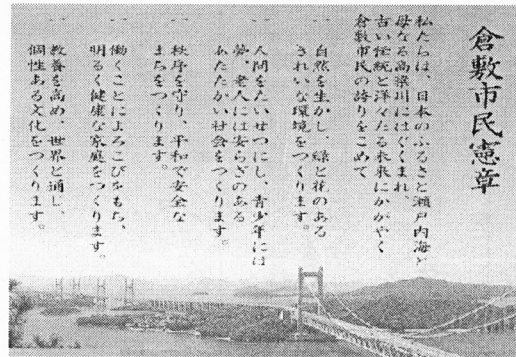 倉敷市民憲章
私たちは、日本のふるさと瀬戸内海と
母なる高梁川にはぐくまれ、
古い伝統と洋々たる未来にかがやく
倉敷市民の誇りをこめて
一 自然を生かし、緑と花のある
きれいな環境をつくります。
一 人間をたいせつにし、青少年には
夢、老人には安らぎのある
あたたかい社会をつくります。
一 秩序を守り、平和で安全な
まちをつくります。
一 働くことによろこびをもち、
明るく健康な家庭をつくります。
一 教養を高め、世界と通じ、
個性ある文化をつくります。